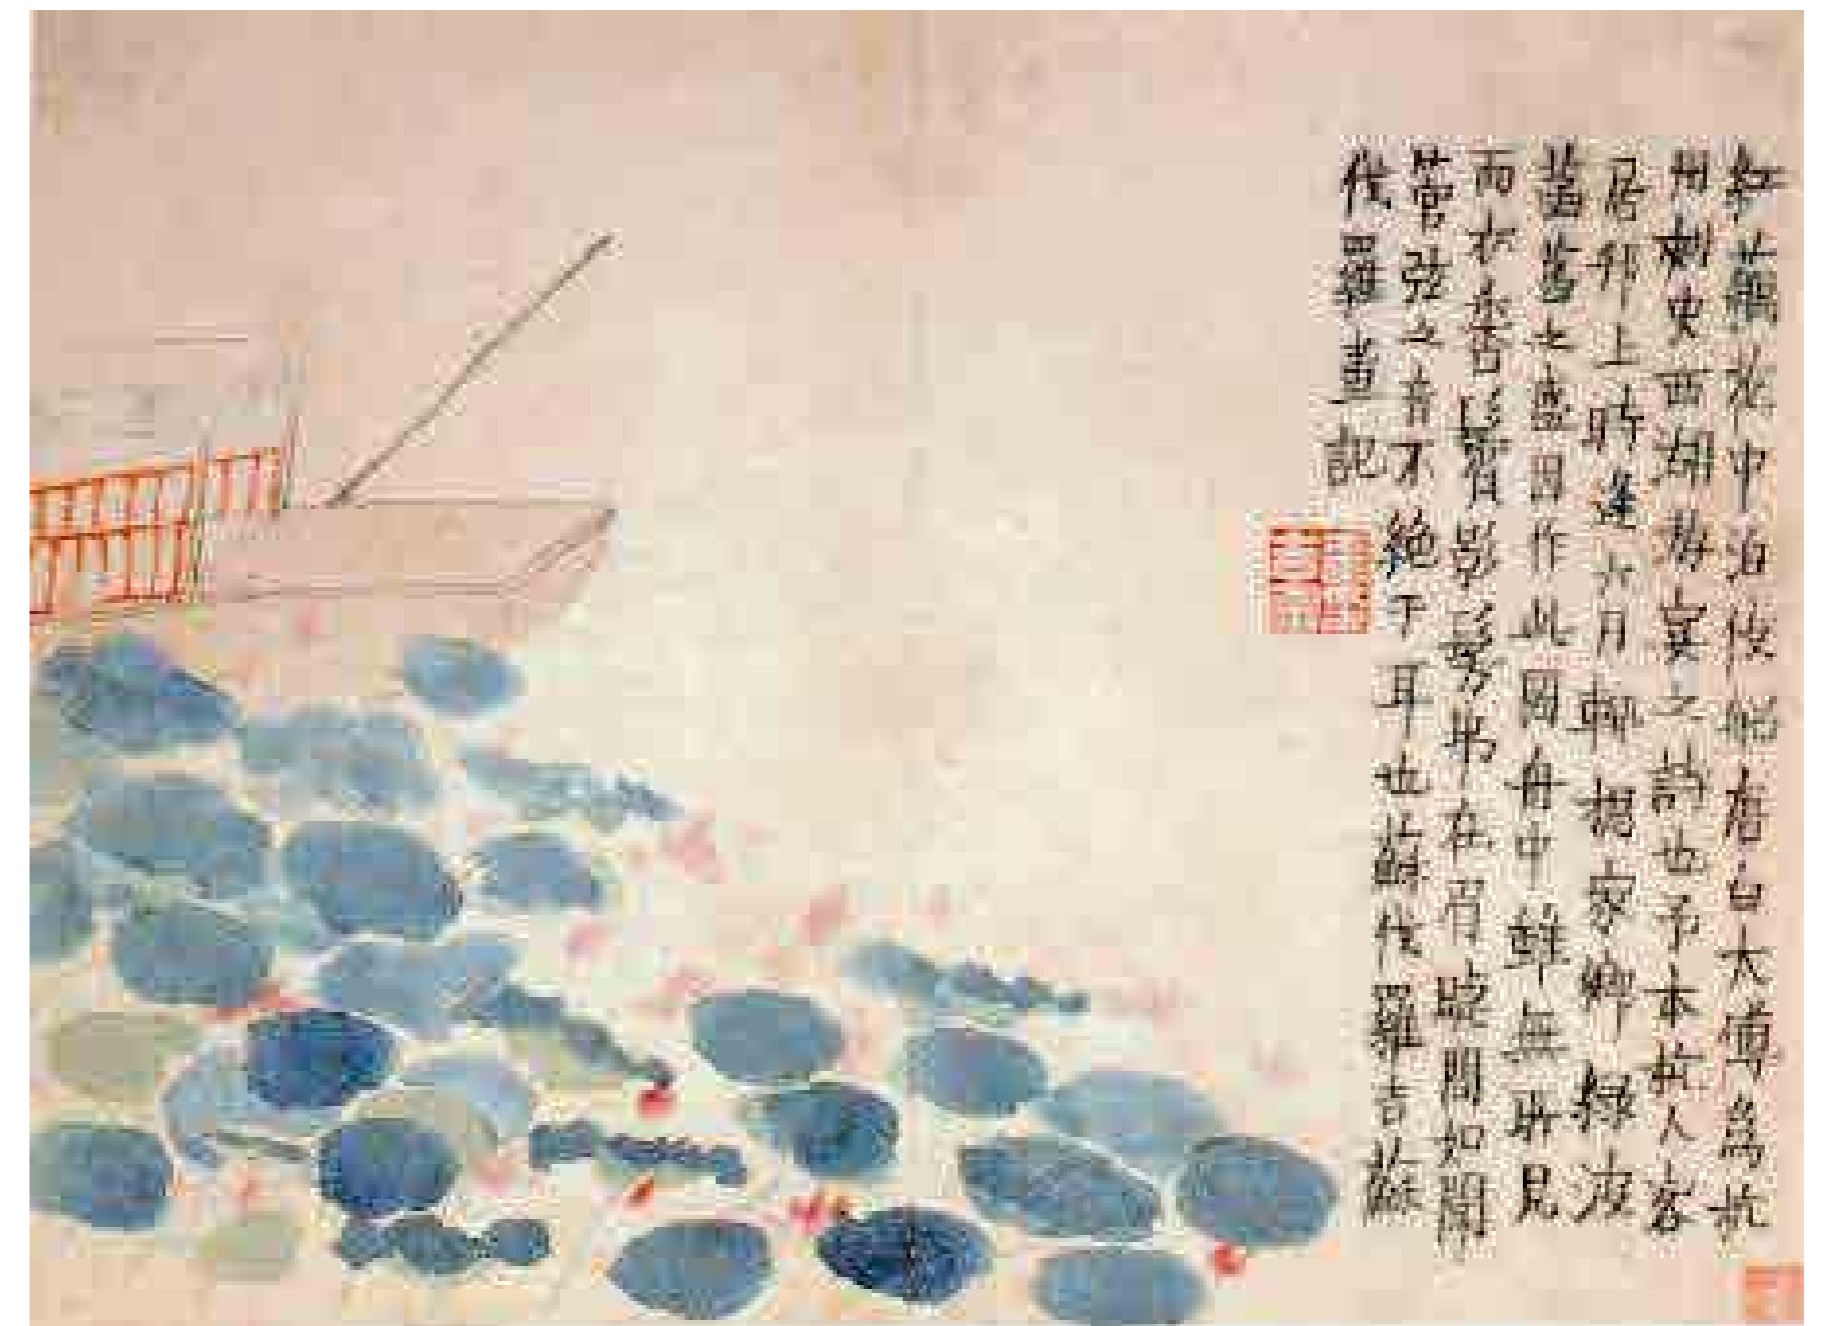 紅藕花中泊伎船唐白太傅為杭
州刺史西湖游宴之詩也予本杭人客
居邗上時逢六月輒想家鄉緑波
菡萏之盛因作此圖舟中雖無所見
而衣香鬢影髣髴在眉睫間如聞
管弦之音不絶于耳也蘇伐羅吉蘇
伐羅畫記